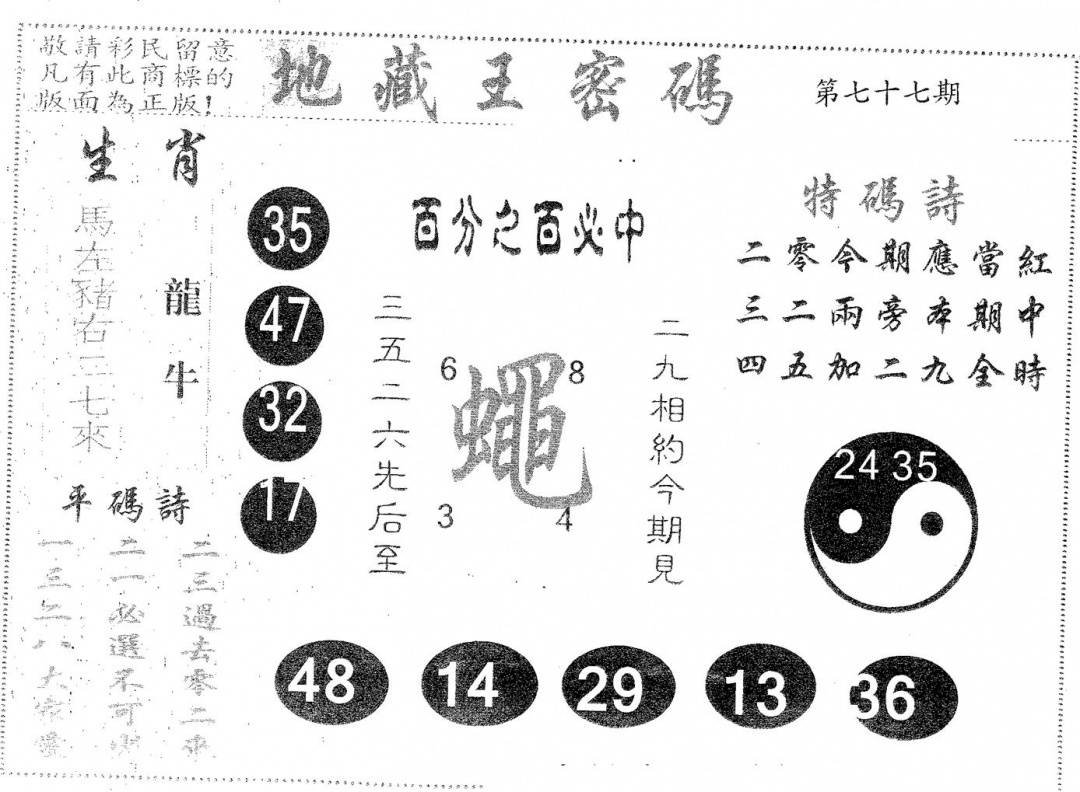 敬請彩民留意
凡有此商標的
版面為正版！
地藏王密碼
第七十七期
生肖
馬左豬右三七來
龍牛
35
47
32
17
百分之百必中
三五二六先后至
6
8
蠅
3
4
二九相約今期見
特碼詩
二零今期應當紅
三二兩旁本期中
四五加二九全時
24 35
平碼詩
二三過去零二來
二一必選不可
一三二八大家愛
48
14
29
13
36